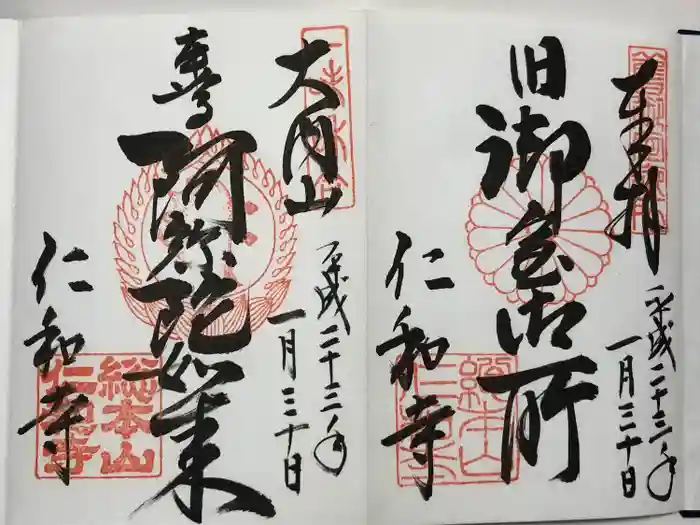 奉拝
平成二十三年
一月三十日
旧御室御所
仁和寺
大内山
平成二十三年
一月三十日
阿弥陀如来
仁和寺
総本山
仁和寺
総本山
仁和寺